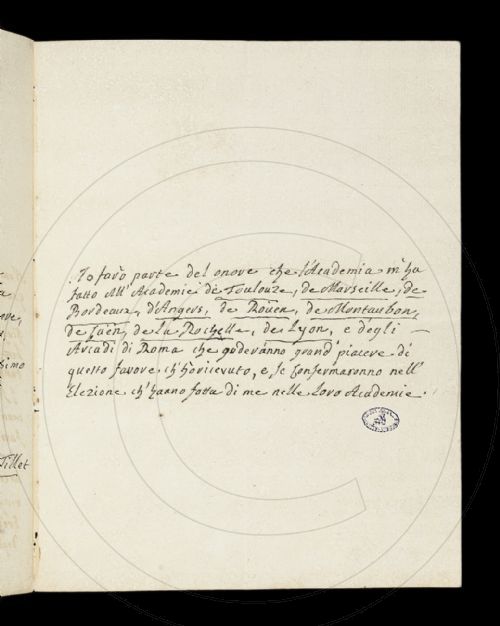 Io farò parte del onore che l'Academia m'ha
fatto All' Academie de Toulouze, de Marseille, de
Bordeaux, d'Angers, de Roüen, de Montauban,
de Caën, de La Rochelle, de Lyon, e degli
Arcadi di Roma che goderanno grand' piacere di
questo favore ch'hò ricevuto, e, se confermaronno nell'
Elezione ch' haano fatta di me nelle Loro Academie.
Tillet